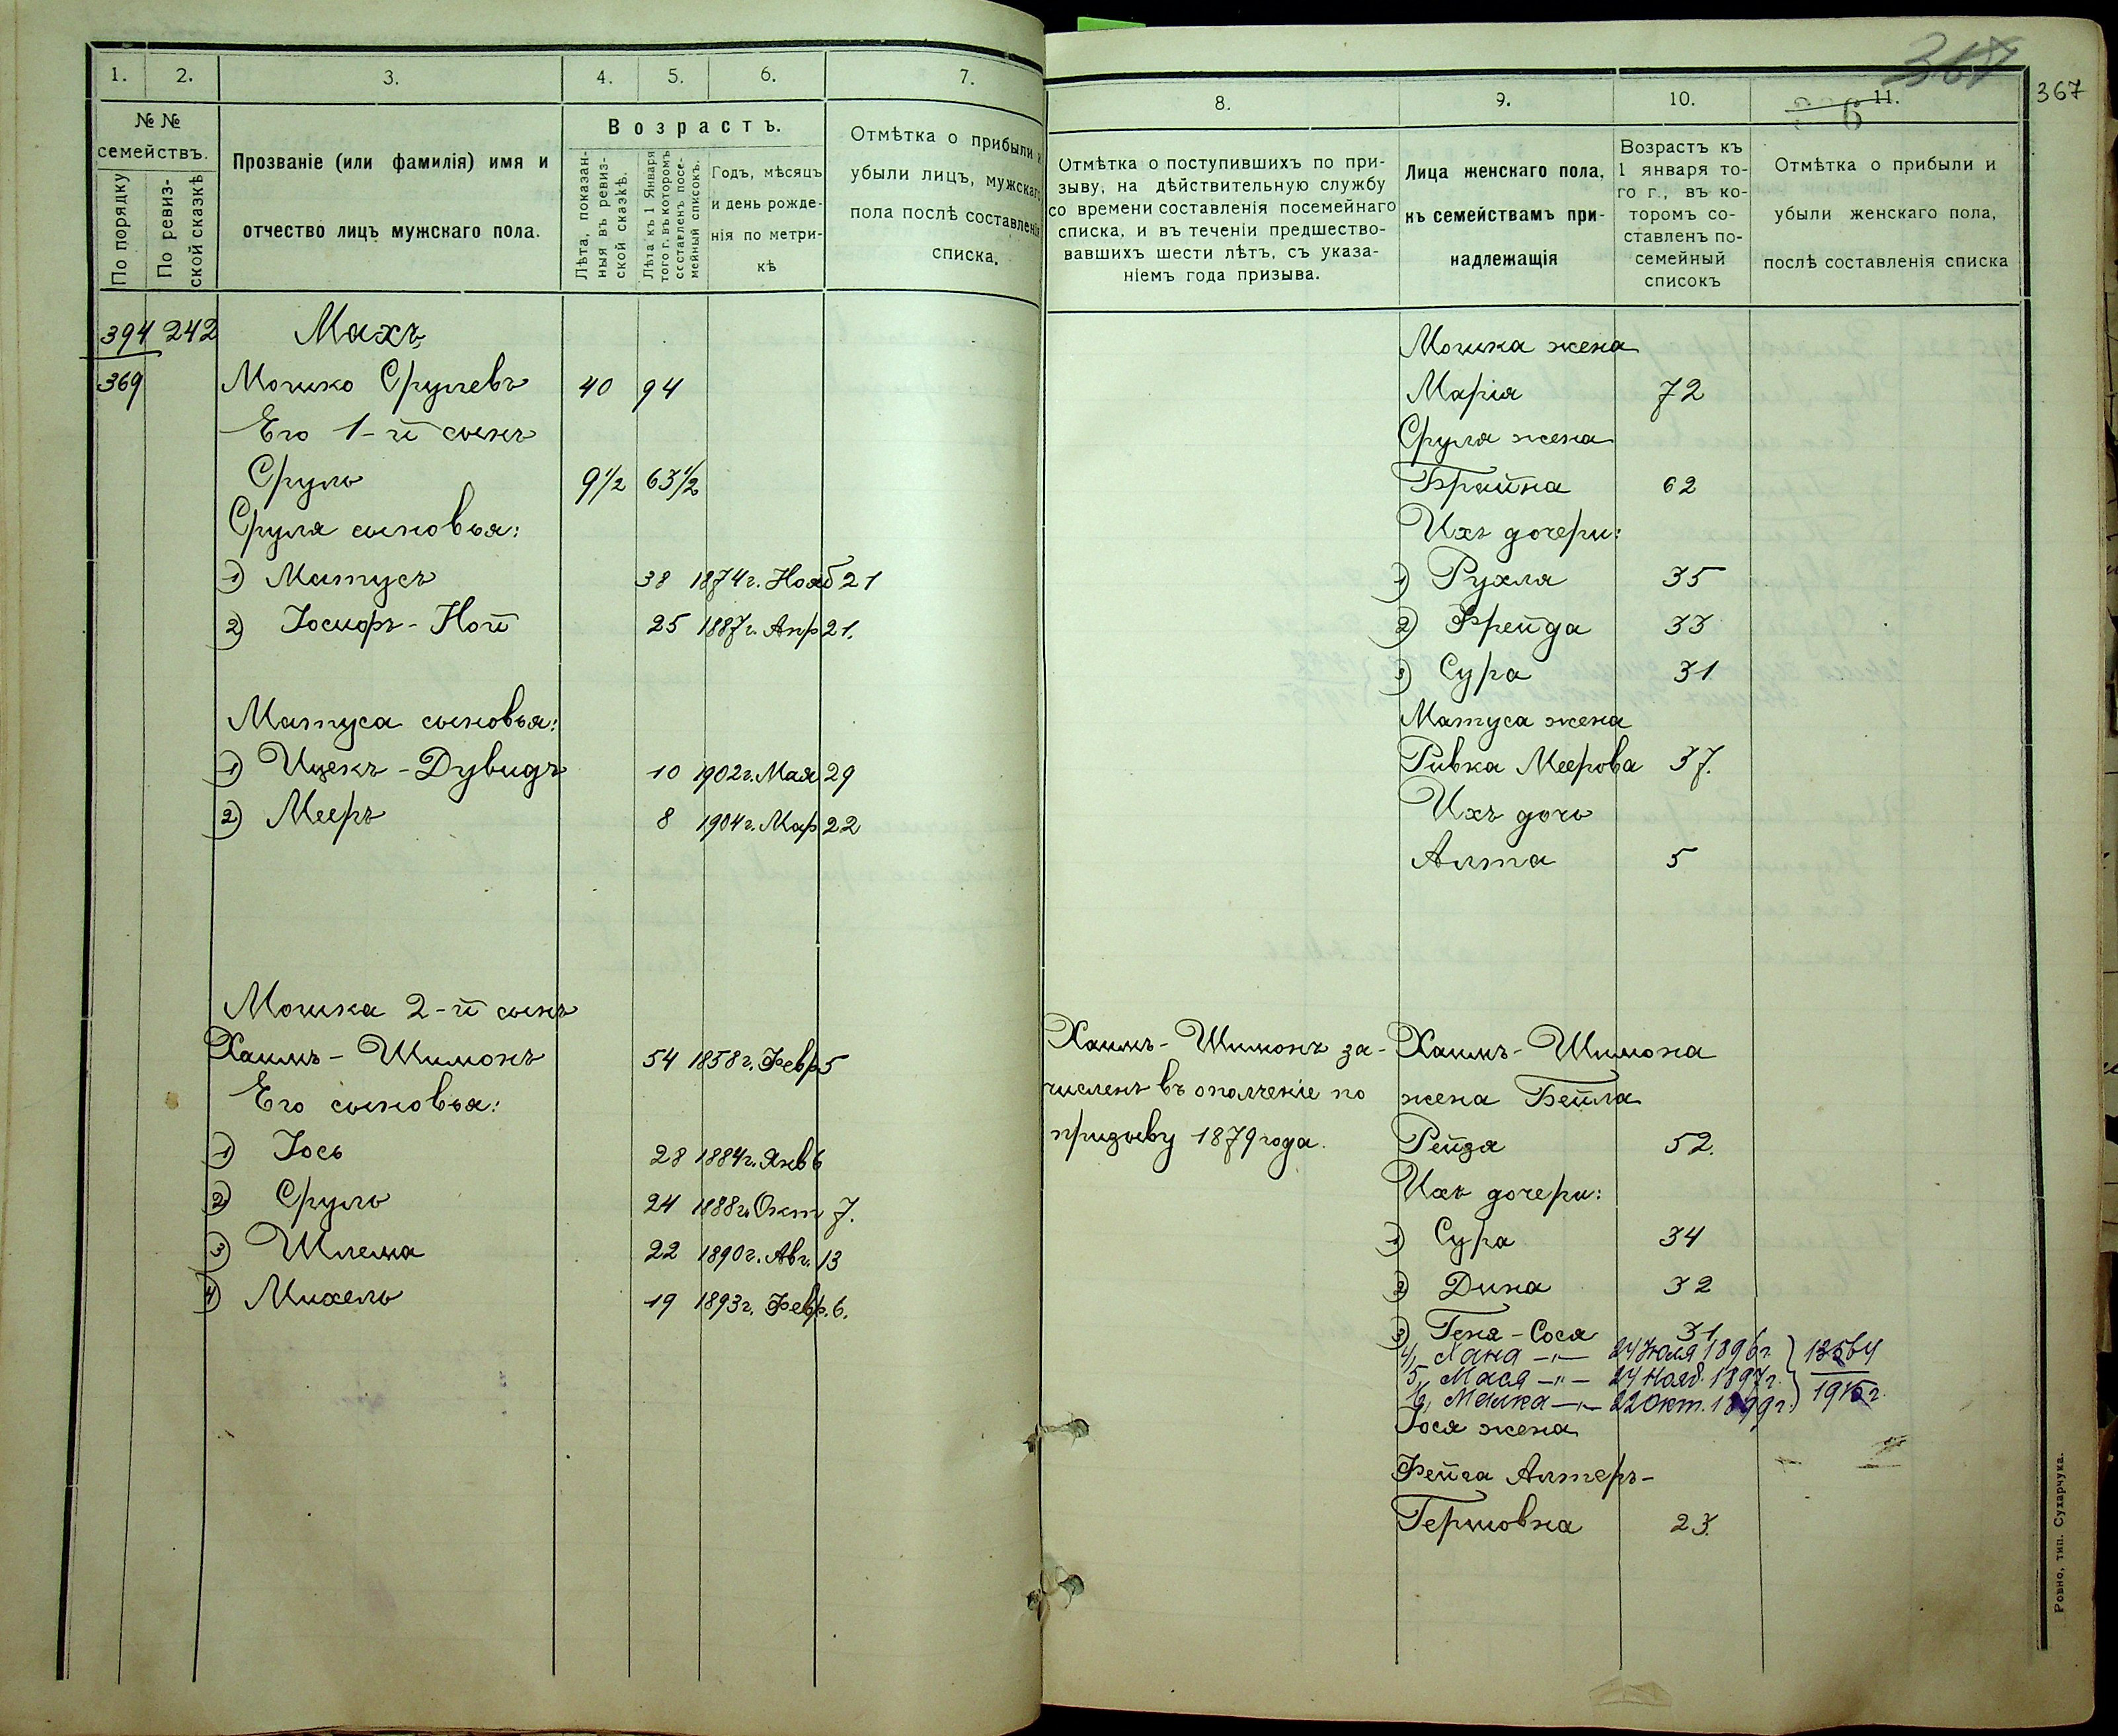 1.
2.
3.
4.
5.
6.
7.
№ №
семействъ.
По порядку
По ревиз-
ской сказкѣ
Прозваніе (или фамилія) имя и
отчество лицъ мужскаго пола.
Возрастъ.
Лѣта, показан-
ныя въ ревиз-
ской сказкѣ.
Лѣта къ 1 Января
того г. въ которомъ
составленъ посе-
мейный списокъ.
Годъ, мѣсяцъ
и день рожде-
нія по метри-
кѣ
Отмѣтка о прибыли и
убыли лицъ, мужскаго
пола послѣ составленія
списка.
394 242 Махъ
369 Мошко Срулевъ 40 94
Его 1-й сынъ
Сруль 9 1/2 63 1/2
Сруля сыновья:
1) Матусъ 38 1874г. Нояб 21
2) Іосифъ-Ной 25 1887г. Апр 21.
Матуса сыновья:
1) Ицекъ-Дувидъ 10 1902г. Мая 29
2) Мееръ 8 1904г. Мар 22
Мошка 2-й сынъ
Хаимъ-Шимонъ 54 1858г. Февр 5
Его сыновья:
1) Іось 28 1884г. Янв 6
2) Сруль 24 1888г. Окт 7.
3) Шлема 22 1890г. Авг. 13
4) Михель 19 1893г. Февр. 6.
367
367
8.
9.
10.
11.
6
Отмѣтка о поступившихъ по при-
зыву, на дѣйствительную службу
со времени составленія посемейнаго
списка, и въ теченіи предшество-
вавшихъ шести лѣтъ, съ указа-
ніемъ года призыва.
Лица женскаго пола,
къ семействамъ при-
надлежащія
Возрастъ къ
1 января то-
го г., въ ко-
торомъ со-
ставленъ по-
семейный
списокъ
Отмѣтка о прибыли и
убыли женскаго пола,
послѣ составленія списка
Мошка жена
Марія 72
Сруля жена
Брайна 62
Ихъ дочери:
1) Рухля 35
2) Фрейда 33
3) Сура 31
Матуса жена
Ривка Меерова 37.
Ихъ дочь
Алта 5
Хаимъ-Шимонъ за-
численъ въ ополченіе по
призыву 1879 года.
Хаимъ-Шимона
жена Бейла
Рейзя 52.
Ихъ дочери:
1) Сура 34
2) Дина 32
3) Геня-Сося 31
4, Хана -"- 24 Июля 1896г.
5, Мася -"- 24 Нояб. 1897г.
6, Малка -"- 22 Окт. 1899г.
Іося жена
Фейга Алтеръ-
Гершовна 23.
Ровно, тип. Сухарчука.